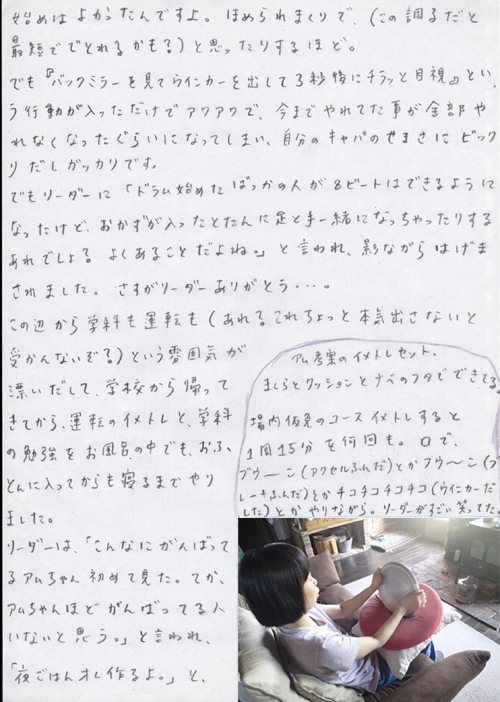 始めはよかったんですよ。ほめられまくりで、(この調るだと
最短ででとれるかもる)と思ったりするほど。
でも『バックミラーを見てウインカーを出して3秒後にチラッと目視』とい
う行動が入っただけでアワアワで、今までやれてた事が全部や
れなくなったぐらいになってしまい、自分のキャパのせまさにビック
りだしガッカリです。
でもリーダーに「ドラム始めたばっかの人が8ビートはできるように
なったけど、おかずが入ったとたんに足と手一緒になっちゃったりする
あれでしょる よくあることだよね。」と言われ、影ながらはげま
されました。さすがリーダーありがとう・・・。
この辺から学科も運転も(あれる これちょっと本気出さないと
受かんないぞる)という雰囲気が
漂いだして、学校から帰って
きてから、運転のイメトレと、学科
の勉強をお風呂の中でも、おふ
とんに入ってからも寝るまでやり
ました。
リーダーは、「こんなにがんばって
るアムちゃん初めて見た。てか、
アムちゃんほどがんばってる人
いないと思う。」と言われ、
「夜ごはんオレ作るよ。」と、
アム考案のイメトレセット。
まくらとクッションとナベのフタでできてる。
場内仮免のコースイメトレすると
1周15分を何回も。口で、
ブウ〜ン(アクセルふんだ)とかフウ〜ン(ブ
レーキふんだ)とかチコチコチコチコ(ウインカーだ
した)とかやりながら。リーダーがすごい笑ってた。